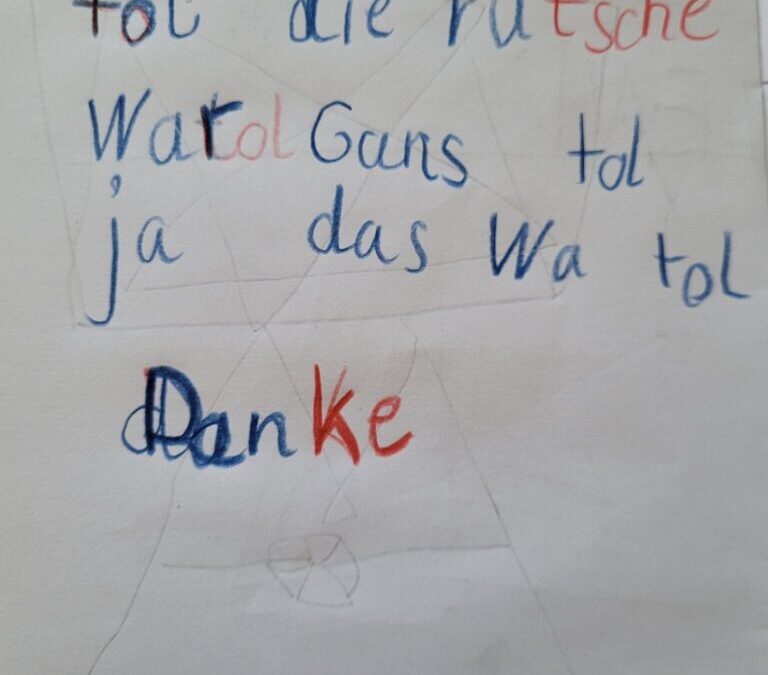 tol die rutsche
War tol Gans tol
ja das Wa tol
Danke